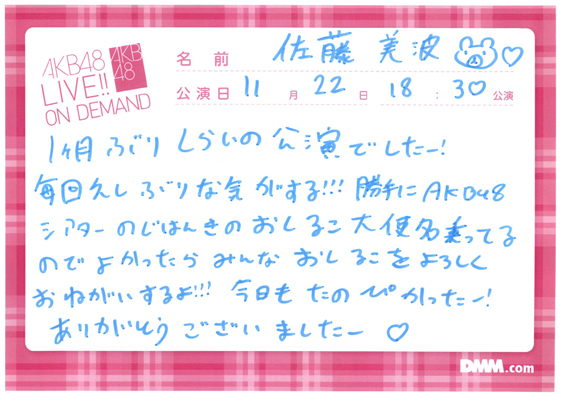 AKB48
LIVE!!
ON DEMAND
AKB
48
名前 佐藤 美波 ♡
公演日 11 月 22 日 18 : 30 公演
1ヶ月ぶりくらいの公演でしたー!
毎回久しぶりな気がする!!! 勝手にAKB48
シアターのじはんきのおしるこ大使名乗ってる
のでよかったらみんなおしるこをよろしく
おねがいするよ!!! 今日もたのぴかったー!
ありがとうございましたー ♡
DMM.com